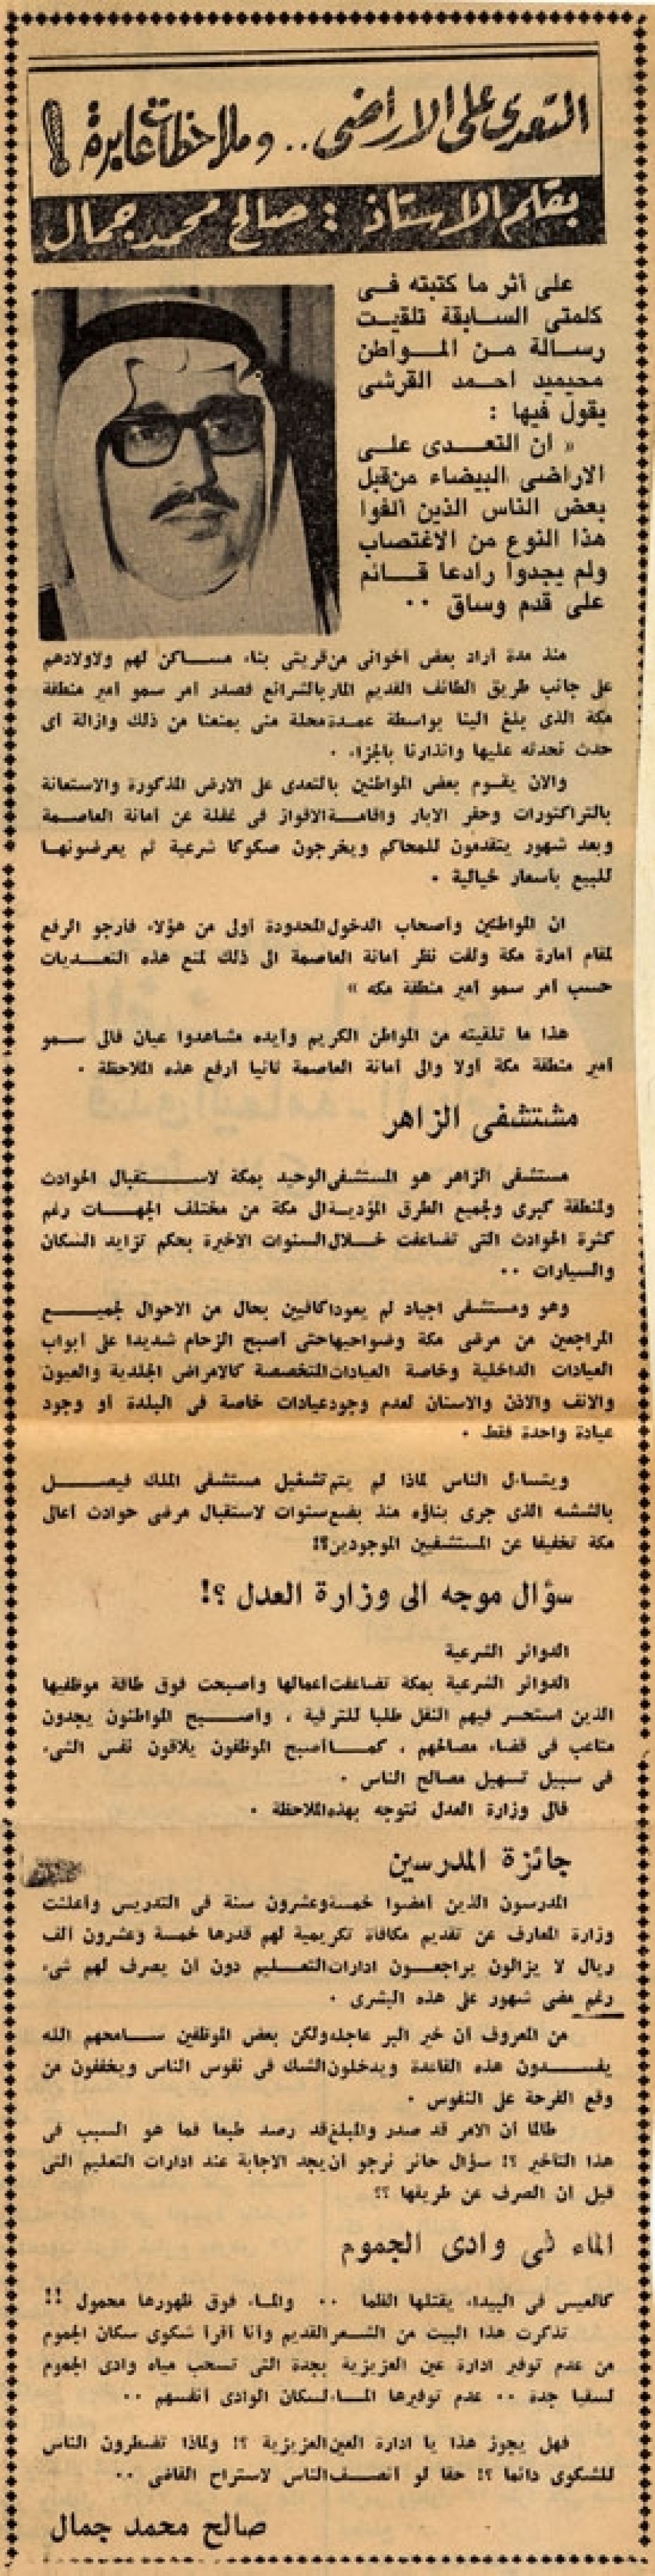 التعدى على الاراضى .. وملاحظات عابرة !
بقلم الاستاذ : صالح محمد جمال
على أثر ما كتبته فــى
كلمتى الســابقة تلقيـت
رســالة مــن المــواطن
محيميد احــمد القرشى
يقول فيها :
« ان التعــــدى علــى
الاراضى البيضاء من قبل
بعض الناس الذين الفوا
هذا النوع من الاغتصاب
ولم يجدوا رادعا قــائم
على قدم وساق ..
منذ مدة أراد بعض أخوانى من قريتى بناء مســاكن لهم ولاولادهم
على جانب طريق الطائف القديم المار بالشرائع فصدر أمر سمو أمير منطقة
مكة الذى بلغ الينا بواسطة عمــدة محلة منى بمنعنا من ذلك وازالة أى
حدث نحدثه عليها وانذارنا بالجزاء .
والان يقــوم بعض المواطنين بالتعدى على الارض المذكورة والاستعانة
بالتراكتورات وحفر الابار واقامــة الاقواز فى غفلة عن أمانة العاصــمة
وبعد شهور يتقدمون للمحاكم ويخرجون صكوكا شرعية ثم يعرضونهـا
للبيع بأسعار خيالية .
ان المواطنين وأصحاب الدخول المحدودة أولى من هؤلاء فأرجو الرفع
لمقام أمارة مكة ولفت نظر أمانة العاصمة الى ذلك لمنع هذه التعــديات
حسب أمر سمو أمير منطقة مكه »
هذا ما تلقيته من المواطن الكريم وأيده مشاهدوا عيان فالى ســمو
أمير منطقة مكة أولا والى أمانة العاصمة ثانيا أرفع هذه الملاحظة .
مشتشفى الزاهر
مستشفى الزاهر هو المستشفى الوحيد بمكة لاســـتقبال الحوادث
ولمنطقة كبرى ولجميع الطرق المؤديــة الى مكة من مختلف الجهــات رغم
كثرة الحوادث التى تضاعفت خــلال السنوات الاخيرة بحكم تزايد السكان
والسيارات ..
وهو ومستشفى اجياد لم يعودا كافيين بحال من الاحوال لجميـــع
المراجعين من مرضى مكة وضواحيها حتى أصبح الزحام شديدا على أبواب
العيادات الداخلية وخاصة العيادات المتخصصة كالامراض الجلدية والعيون
والانف والاذن والاسنان لعدم وجود عيادات خاصة فى البلدة أو وجود
عيادة واحدة فقط .
ويتساءل الناس لماذا لم يتم تشغيل مستشفى الملك فيصــل
بالششه الذى جرى بناؤه منذ بضع سنوات لاستقبال مرضى حوادث أعالى
مكة تخفيفا عن المستشفيين الموجودين ؟!
سؤال موجه الى وزارة العدل ؟!
الدوائر الشرعية
الدوائر الشرعية بمكة تضاعفت أعمالها وأصبحت فوق طاقة موظفيها
الذين استحــر فيهم النقل طلبا للترقية ، وأصــبح المواطنون يجدون
متاعب فى قضاء مصالحهم ، كمــا أصبح الموظفون يلاقون نفس الشىء
فى سبيل تسهيل مصالح الناس .
فالى وزارة العدل نتوجه بهذه الملاحظة .
جائزة المدرسين
المدرسون الذين أمضوا خمسة وعشرون سنة فى التدريس وأعلنت
وزارة المعارف عن تقديم مكافأة تكريمية لهم قدرها خمسة وعشرون الف
ريال لا يزالون يراجعــون ادارات التعــليم دون أن يصرف لهم شىء
رغم مضى شهور على هذه البشرى .
من المعروف أن خير البر عاجله ولكن بعض الموظفين ســامحهم الله
يفســـدون هذه القاعدة ويدخلون الشك فى نفوس الناس ويخففون من
وقع الفرحة على النفوس .
طالما أن الامر قد صدر والمبلغ قد رصد طبعا فما هو السبب فى
هذا التأخير ؟! سؤال حائر نرجو أن يجد الاجابة عند ادارات التعليم التى
قيل ان الصرف عن طريقها ؟؟
الماء فى وادى الجموم
كالعيس فى البيداء يقتلها الظما .. والمــاء فوق ظهورها محمول !!
تذكرت هذا البيت من الشــعر القديم وأنا أقرأ شكوى سكان الجموم
من عدم توفير ادارة عين العزيزية بجدة التى تسحب مياه وادى الجموم
لسقيا جدة .. عدم توفيرها المــاء لسكان الوادى أنفسهم ..
فهل يجوز هذا يا ادارة العين العزيزية ؟! ولماذا تضطرون الناس
للشكوى دائما ؟! حقا لو أنصــف الناس لاستراح القاضى ..
صالح محمد جمال